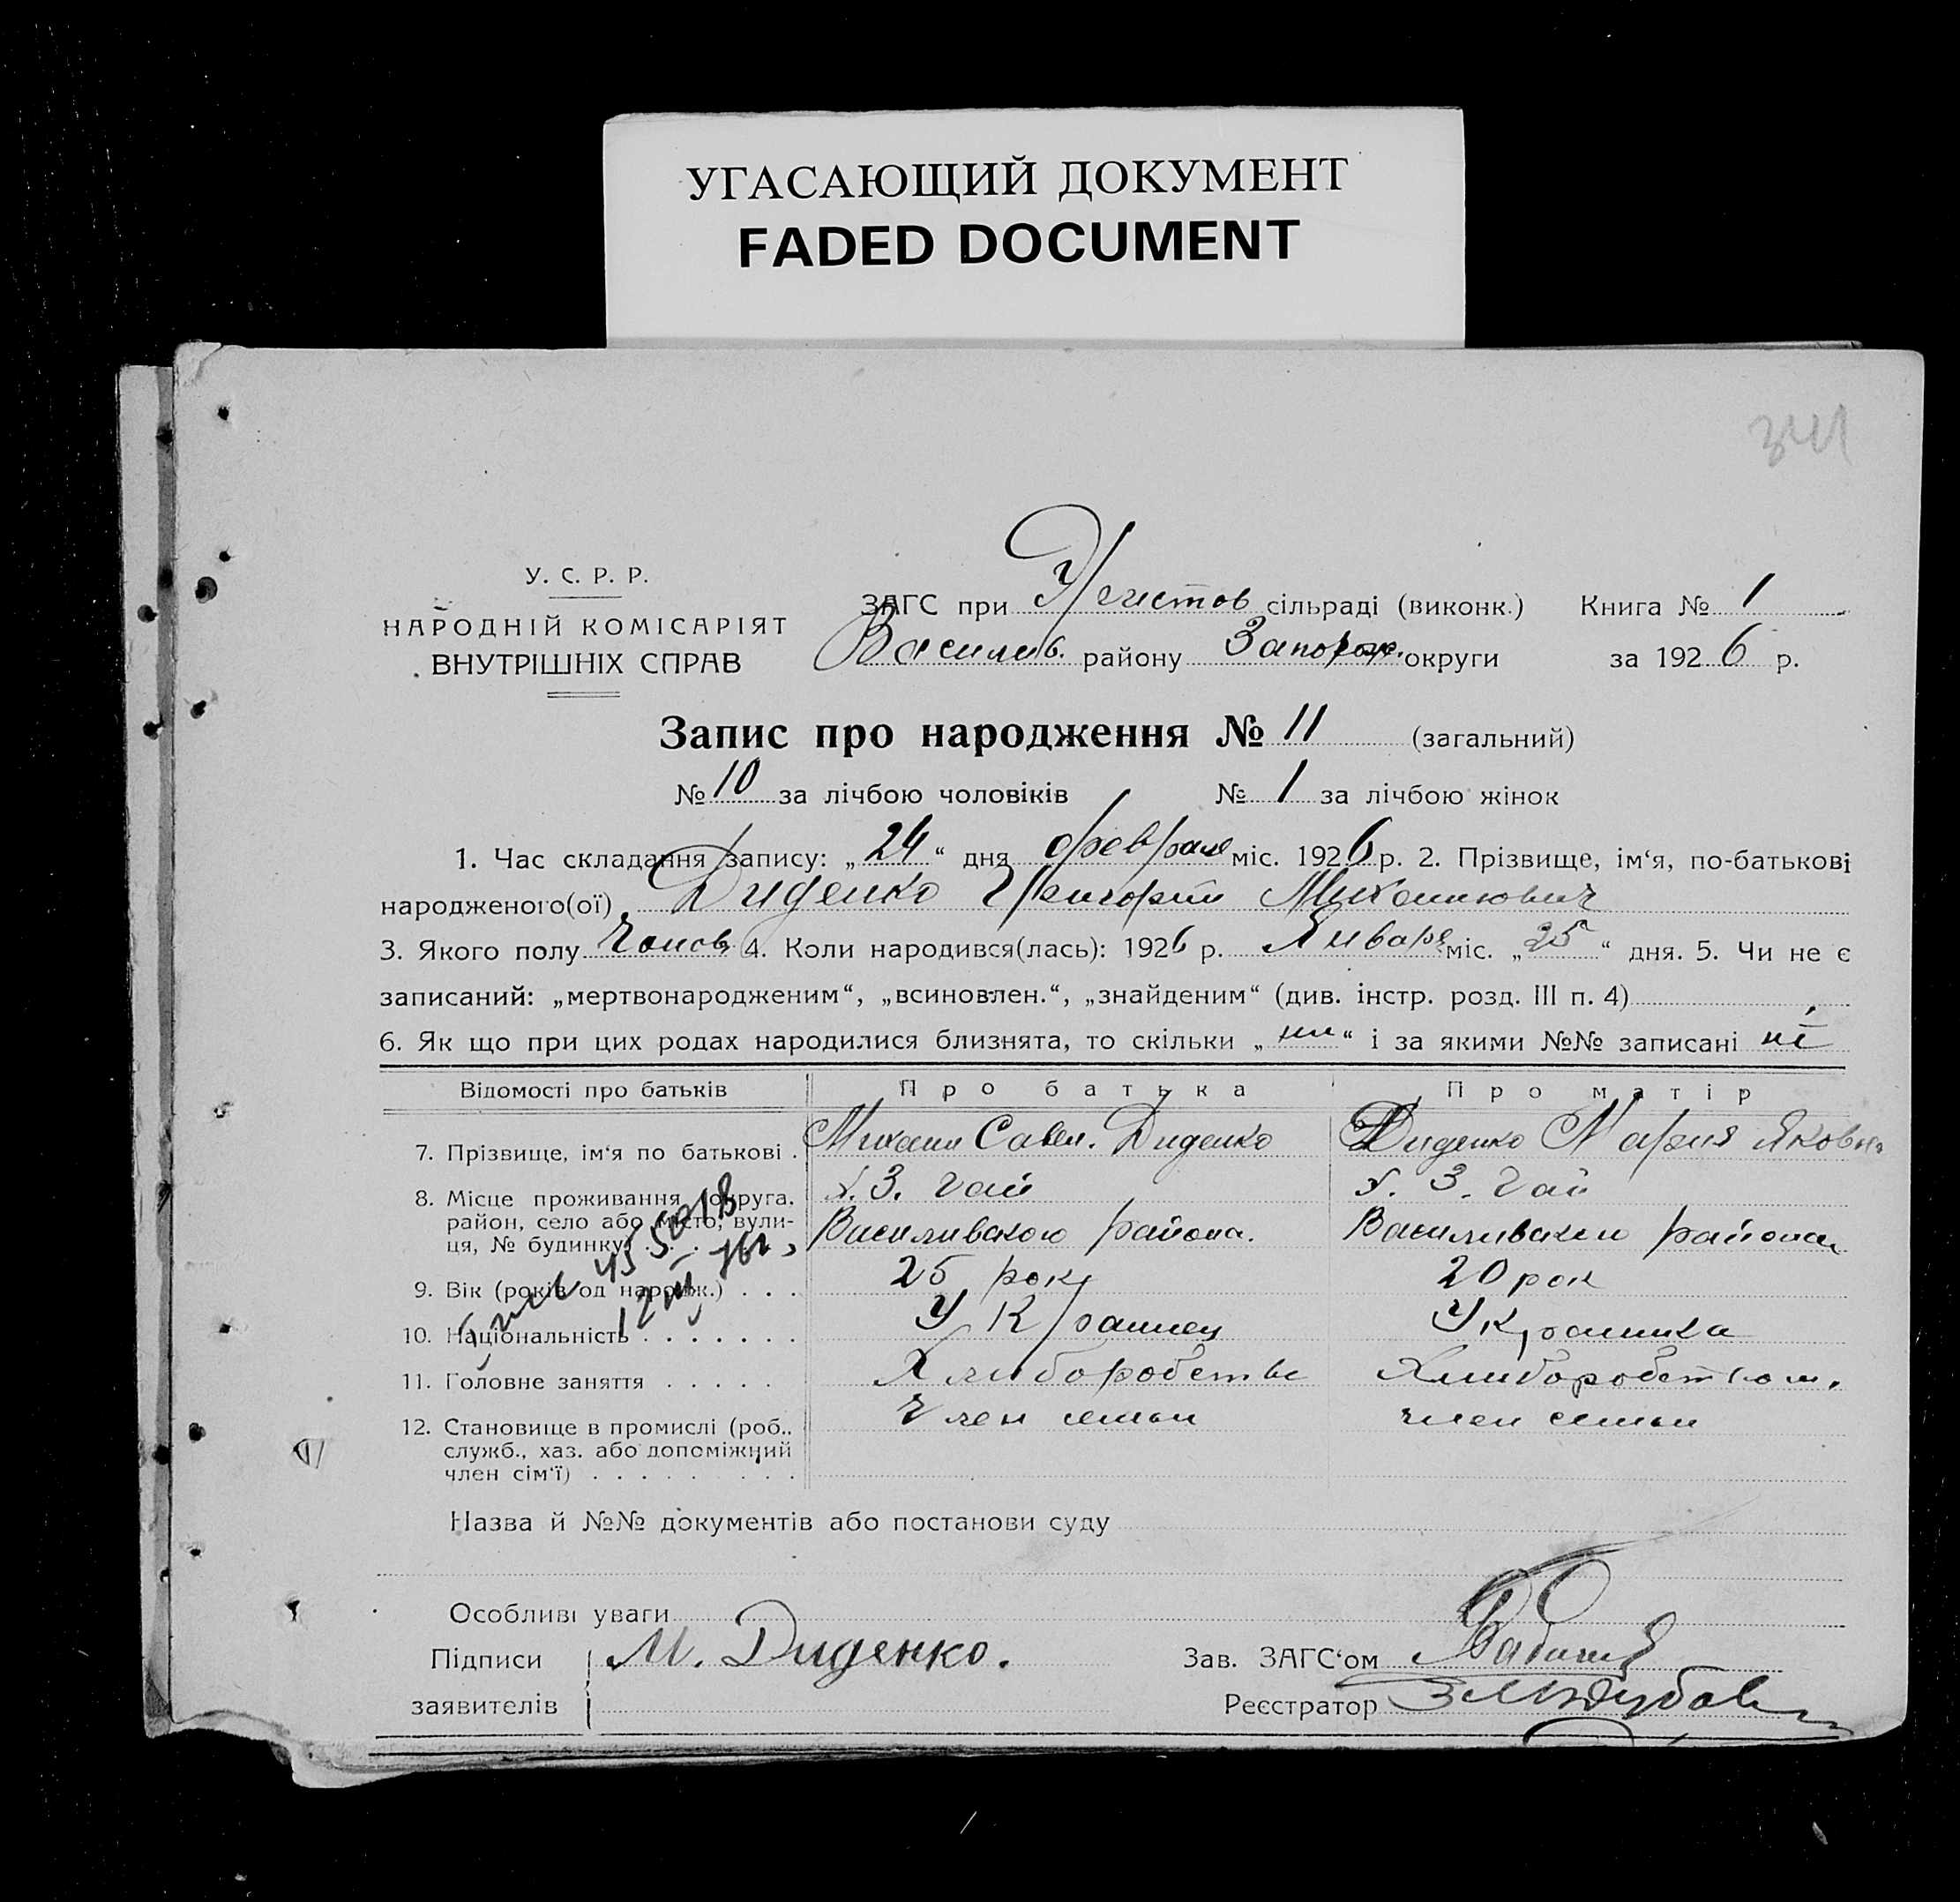 УГАСАЮЩИЙ ДОКУМЕНТ
FADED DOCUMENT
341
У. С. Р. Р.
НАРОДНІЙ КОМІСАРІЯТ
ВНУТРІШНІХ СПРАВ
ЗАГС при сільраді (виконк.) Книга № 1
Василів. району Запорож. округи за 1926 р.
Запис про народження № 11 (загальний)
№ 10 за лічбою чоловіків № 1 за лічбою жінок
1. Час складання запису: „24“ дня февраля міс. 1926 р. 2. Прізвище, ім‘я, по-батькові
народженого(ої) Диденко Григорий Михайлович
3. Якого полу Чолов. 4. Коли народився(лась): 1926 р. Января міс. „25“ дня. 5. Чи не є
записаний: „мертвонародженим“, „всиновлен.“, „знайденим“ (див. інстр. розд. III п. 4)
6. Як що при цих родах народилися близнята, то скільки „ни“ і за якими №№ записані ні
Відомості про батьків Про батька Про матір
7. Прізвище, ім‘я по батькові . Михаил Савел. Диденко Диденко Мария Яковна
8. Місце проживання (округа, х. З. Гай х. З. Гай
район, село або місто, вули-
ця, № будинку) . . . Василивского района. Василивского района
9. Вік (років од народж.) . . . 25 рок 20 рок
10. Національність . . . . . . . Украинец Украинка
11. Головне заняття . . . . . Хлиборобство Хлиборобством.
12. Становище в промислі (роб., Член семьи член семьи
служб., хаз. або допоміжний
член сім‘ї) . . . . . . . . .
Назва й №№ документів або постанови суду
Особливі уваги
Підписи М. Диденко. Зав. ЗАГС‘ом
заявителів Реєстратор